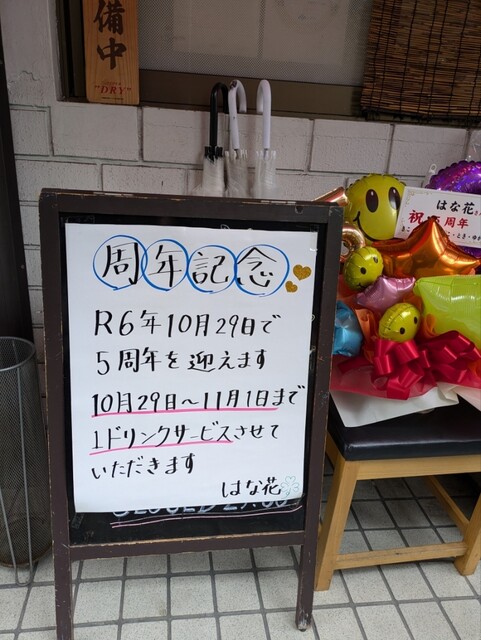 備中
"DRY"
周年記念
R6年10月29日で
5周年を迎えます
10月29日〜11月1日まで
1ドリンクサービスさせて
いただきます
はな花
はな花さん
祝 周年